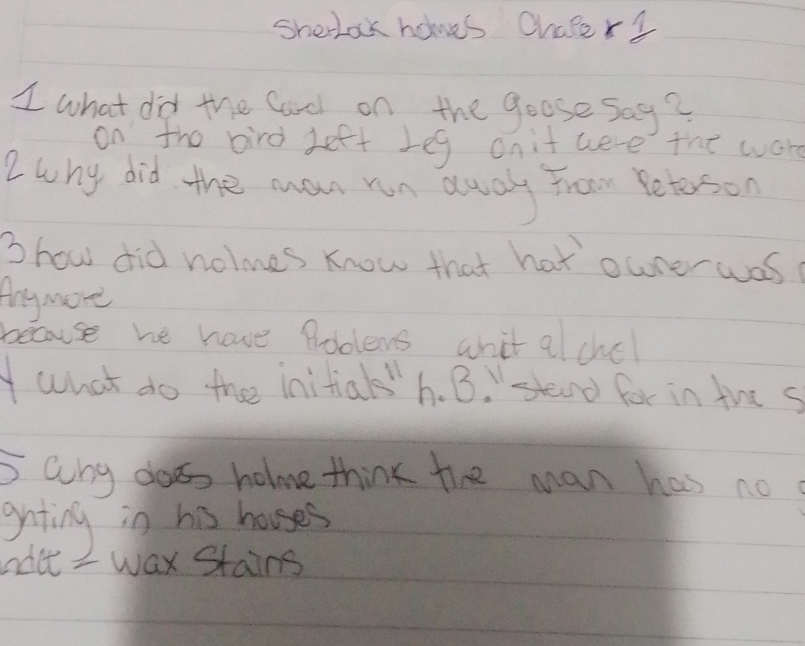 Sherlock holmes Chapter 1
1 What did the Card on the goose say?
on tho bird Left Leg on it were the word
2 why did the man run away From Peterson
3 how did holmes know that hat owner was
Anymore
because he have Problems whit alchol
4 what do the initials "h.B." stand for in the s
5 why does holme think the man has no g
ghting in his houses
ndle = wax Stains